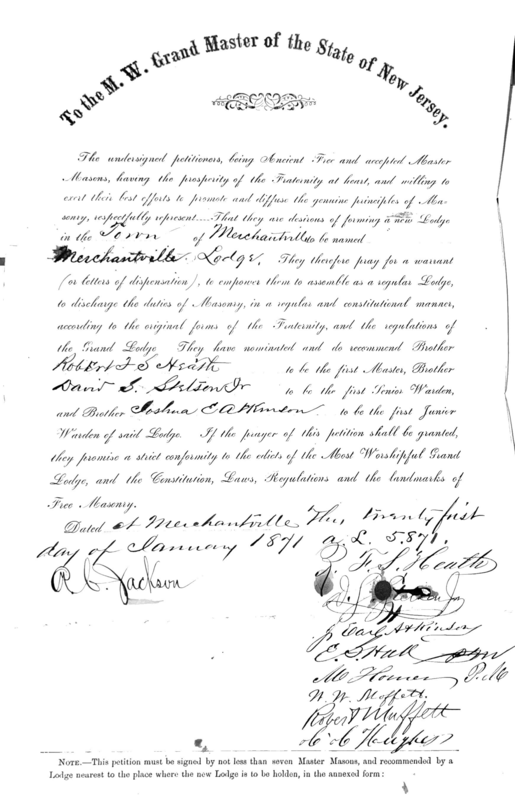 To the M. W. Grand Master of the State of New Jersey.
The undersigned petitioners, being Ancient Free and accepted Master
Masons, having the prosperity of the Fraternity at heart, and willing to
exert their best efforts to promote and diffuse the genuine principles of Ma-
sonry, respectfully represent....That they are desirous of forming a new Lodge
in the Town of Merchantville to be named
Merchantville Lodge. They therefore pray for a warrant
(or letters of dispensation), to empower them to assemble as a regular Lodge,
to discharge the duties of Masonry, in a regular and constitutional manner,
according to the original forms of the Fraternity, and the regulations of
the Grand Lodge They have nominated and do recommend Brother
Robert F S Heath to be the first Master, Brother
David S. Stetson Jr to be the first Senior Warden,
and Brother Joshua C Atkinson to be the first Junior
Warden of said Lodge. If the prayer of this petition shall be granted,
they promise a strict conformity to the edicts of the Most Worshipful Grand
Lodge, and the Constitution, Laws, Regulations and the landmarks of
Free Masonry.
Dated at Merchantville this twenty first
day of January 1871 A. L. 5.871.
R. F. S. Heath
R. C. Jackson
Stetson Jr
J. Earl Atkinson
E. S. Hall
M Homer P.M
W. W. Moffett.
Robert Muffett
Hughes
NOTE.—This petition must be signed by not less than seven Master Masons, and recommended by a
Lodge nearest to the place where the new Lodge is to be holden, in the annexed form: